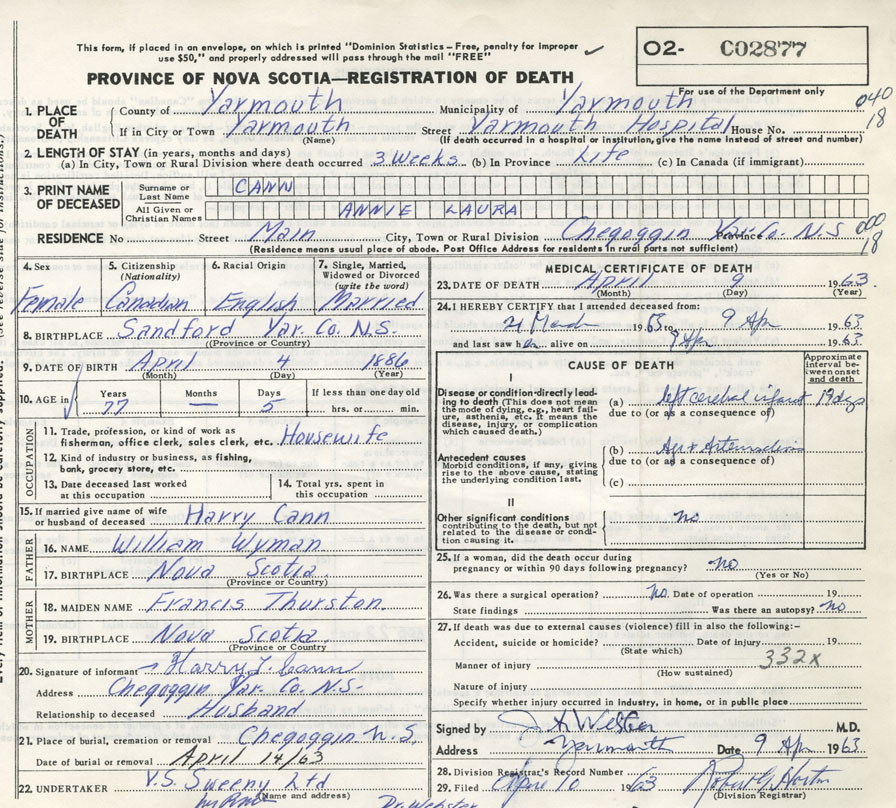 This form, if placed in an envelope, on which is printed "Dominion Statistics – Free, penalty for improper
use $50," and properly addressed will pass through the mail "FREE"
O2- C02877
PROVINCE OF NOVA SCOTIA—REGISTRATION OF DEATH
For use of the Department only
040
18
1. PLACE OF DEATH County of Yarmouth Municipality of Yarmouth
If in City or Town Yarmouth Street Yarmouth Hospital House No.
(Name) (If death occurred in a hospital or institution, give the name instead of street and number)
2. LENGTH OF STAY (in years, months and days)
(a) In City, Town or Rural Division where death occurred 3 Weeks (b) In Province Life (c) In Canada (if immigrant)
3. PRINT NAME OF DECEASED Surname or Last Name CANN
All Given or Christian Names ANNIE LAURA
RESIDENCE No Street Main City, Town or Rural Division Chegoggin Yar. Co. Province N.S
000
18
(Residence means usual place of abode. Post Office Address for residents in rural parts not sufficient)
4. Sex Female
5. Citizenship (Nationality) Canadian
6. Racial Origin English
7. Single, Married, Widowed or Divorced (write the word) Married
8. BIRTHPLACE Sandford Yar. Co. N.S.
(Province or Country)
9. DATE OF BIRTH April 4 1886
(Month) (Day) (Year)
10. AGE in Years 77 Months — Days 5 If less than one day old hrs. or min.
OCCUPATION
11. Trade, profession, or kind of work as
fisherman, office clerk, sales clerk, etc. Housewife
12. Kind of industry or business, as fishing,
bank, grocery store, etc.
13. Date deceased last worked at this occupation
14. Total yrs. spent in this occupation
15. If married give name of wife
or husband of deceased Harry Cann
FATHER
16. NAME William Wyman
17. BIRTHPLACE Nova Scotia
(Province or Country)
MOTHER
18. MAIDEN NAME Francis Thurston.
19. BIRTHPLACE Nova Scotia
(Province or Country
20. Signature of informant Harry L Cann
Address Chegoggin Yar. Co. N.S-
Relationship to deceased Husband
21. Place of burial, cremation or removal Chegoggin N.S.
Date of burial or removal April 14/63
22. UNDERTAKER V.S. Sweeny Ltd
(Name and address)
Dr. Webster
MEDICAL CERTIFICATE OF DEATH
23. DATE OF DEATH April 9 1963.
(Month) (Day) (Year)
24. I HEREBY CERTIFY that I attended deceased from:
21 March 1963 to 9 Apr 1963
and last saw her alive on 9 Apr 1963
CAUSE OF DEATH
Approximate interval between onset and death
I
Disease or condition directly leading to death (This does not mean the mode of dying, e.g., heart failure, asthenia, etc. It means the disease, injury, or complication which caused death.)
(a) left cerebral infarct 19 days
due to (or as a consequence of)
Antecedent causes
Morbid conditions, if any, giving rise to the above cause, stating the underlying condition last.
(b)
due to (or as a consequence of)
(c)
II
Other significant conditions
contributing to the death, but not related to the disease or condition causing it.
no
25. If a woman, did the death occur during
pregnancy or within 90 days following pregnancy? no
(Yes or No)
26. Was there a surgical operation? no Date of operation 19
State findings Was there an autopsy? no
27. If death was due to external causes (violence) fill in also the following:-
Accident, suicide or homicide? Date of injury 19
(State which)
332X
Manner of injury
(How sustained)
Nature of injury
Specify whether injury occurred in industry, in home, or in public place
Signed by J A Webster M.D.
Address Yarmouth Date 9 Apr 1963
28. Division Registrar's Record Number
29. Filed Apr 10 1963 Robert G Horton
(Division Registrar)